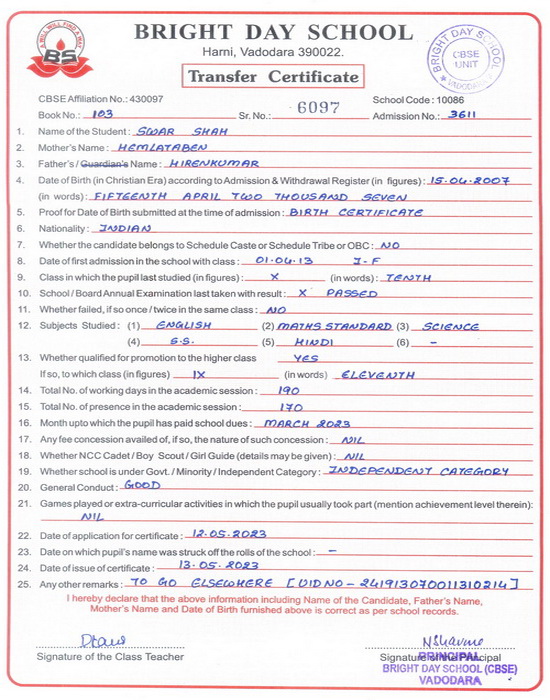 A WILL WILL FIND A WAY
BS
BRIGHT DAY SCHOOL
Harni, Vadodara 390022.
Transfer Certificate
BRIGHT DAY SCHOOL
CBSE
UNIT
VADODARA
CBSE Affiliation No.: 430097 School Code : 10086
Book No.: 103 Sr. No.: 6097 Admission No.: 3611
1. Name of the Student : SWAR SHAH
2. Mother's Name : HEMLATABEN
3. Father's / Guardian's Name : HIRENKUMAR
4. Date of Birth (in Christian Era) according to Admission & Withdrawal Register (in figures) : 15.04.2007
(in words) : FIFTEENTH APRIL TWO THOUSAND SEVEN
5. Proof for Date of Birth submitted at the time of admission : BIRTH CERTIFICATE
6. Nationality : INDIAN
7. Whether the candidate belongs to Schedule Caste or Schedule Tribe or OBC : NO
8. Date of first admission in the school with class : 01.04.13 I-F
9. Class in which the pupil last studied (in figures) : X (in words) : TENTH
10. School / Board Annual Examination last taken with result : X PASSED
11. Whether failed, if so once / twice in the same class : NO
12. Subjects Studied : (1) ENGLISH (2) MATHS STANDARD (3) SCIENCE
(4) S.S. (5) HINDI (6) -
13. Whether qualified for promotion to the higher class YES
If so, to which class (in figures) IX (in words) ELEVENTH
14. Total No. of working days in the academic session : 190
15. Total No. of presence in the academic session : 170
16. Month upto which the pupil has paid school dues : MARCH 2023
17. Any fee concession availed of, if so, the nature of such concession : NIL
18. Whether NCC Cadet / Boy Scout / Girl Guide (details may be given) : NIL
19. Whether school is under Govt. / Minority / Independent Category : INDEPENDENT CATEGORY
20. General Conduct : GOOD
21. Games played or extra-curricular activities in which the pupil usually took part (mention achievement level therein) :
NIL
22. Date of application for certificate : 12.05.2023
23. Date on which pupil's name was struck off the rolls of the school : -
24. Date of issue of certificate : 13.05.2023
25. Any other remarks : TO GO ELSEWHERE [UID NO- 241913070011310214]
I hereby declare that the above information including Name of the Candidate, Father's Name,
Mother's Name and Date of Birth furnished above is correct as per school records.
Signature of the Class Teacher Signature of the Principal
PRINCIPAL
BRIGHT DAY SCHOOL (CBSE)
VADODARA